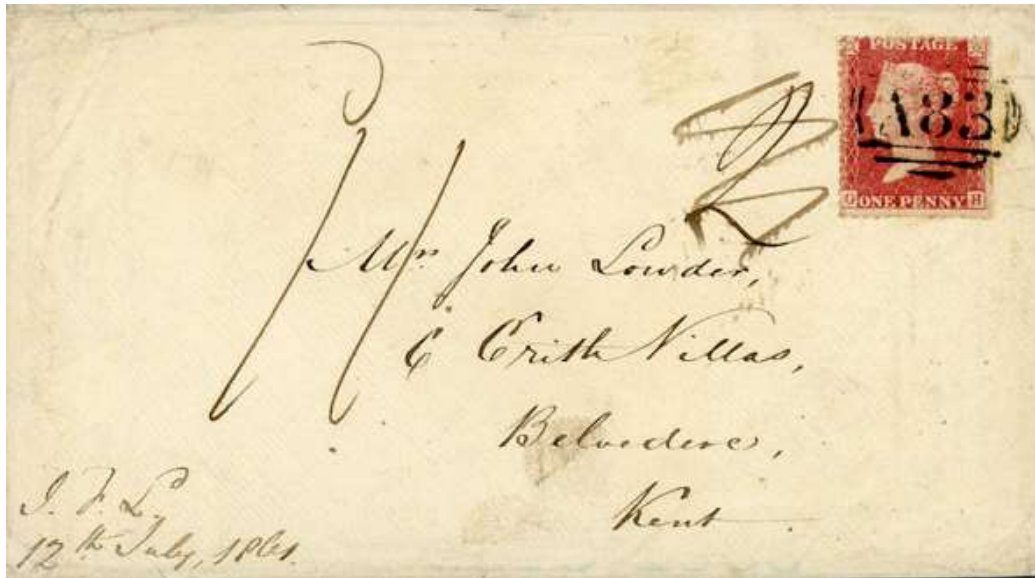 POSTAGE
A83
ONE PENNY
H
2
11
Mrs. John Lowder,
6 Erith Villas,
Belvedere,
Kent.
J. F. L.
12th July, 1861.